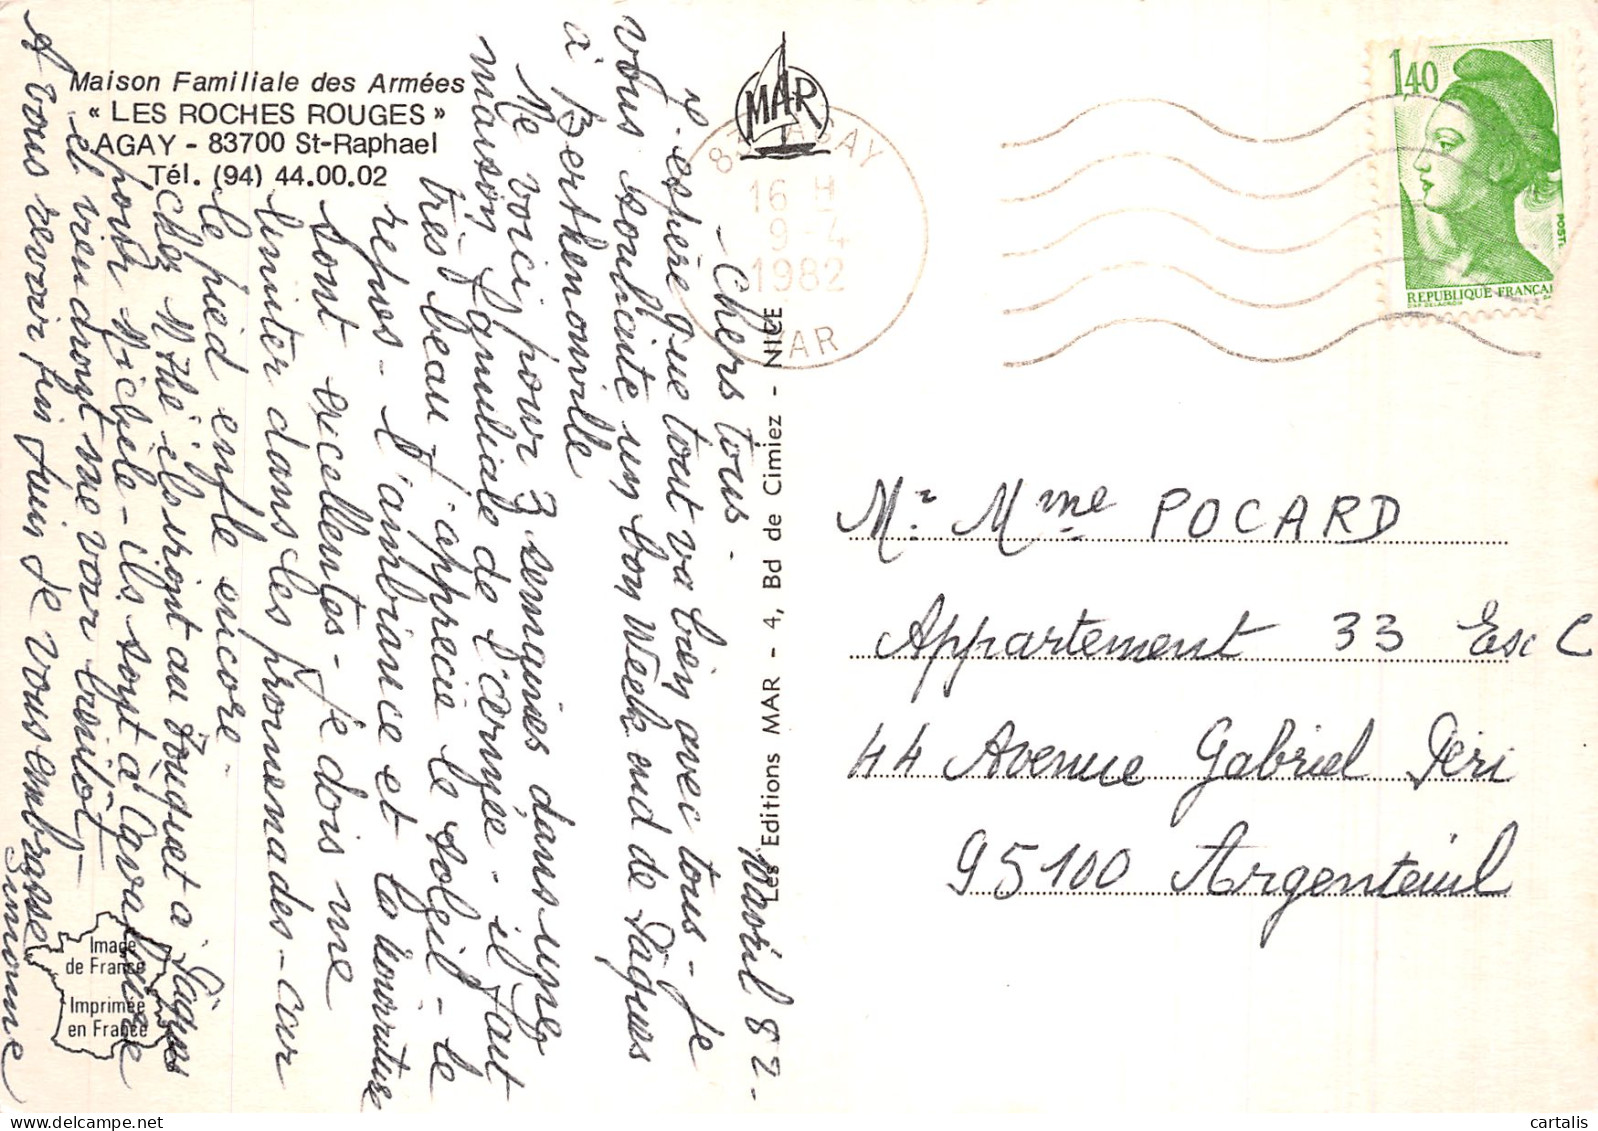 Maison Familiale des Armées
« LES ROCHES ROUGES »
AGAY - 83700 St-Raphael
Tél. (94) 44.00.02
MAR
83 AGAY
16 H
9-4
1982
VAR
1,40
POST
REPUBLIQUE FRANÇAI
avril 82-
Chers tous-
J'espère que tout va bien avec tous- Je
vous souhaite un bon Week end de Pâques
à Berthenonville
Me voici pour 3 semaines dans une
maison familiale de l'armée- il fait
très beau j'apprecie le soleil- le
repos- l'ambiance et la nourriture
sont excellentes- je dois me
limiter dans les promenades- car
le pied enfle encore-
chez M Thé ils iront au Touquet à Pâques
pour Michèle- ils sont à Cavalaire
et viendront me voir bientôt-
A vous revoir fin Juin je vous embrasse
Simonne
Les Editions MAR - 4, Bd de Cimiez - NICE
Mr. Mme POCARD
Appartement 33 Esc C
44 Avenue Gabriel Péri
95100 Argenteuil
Image
de France
Imprimée
en France
cartalis